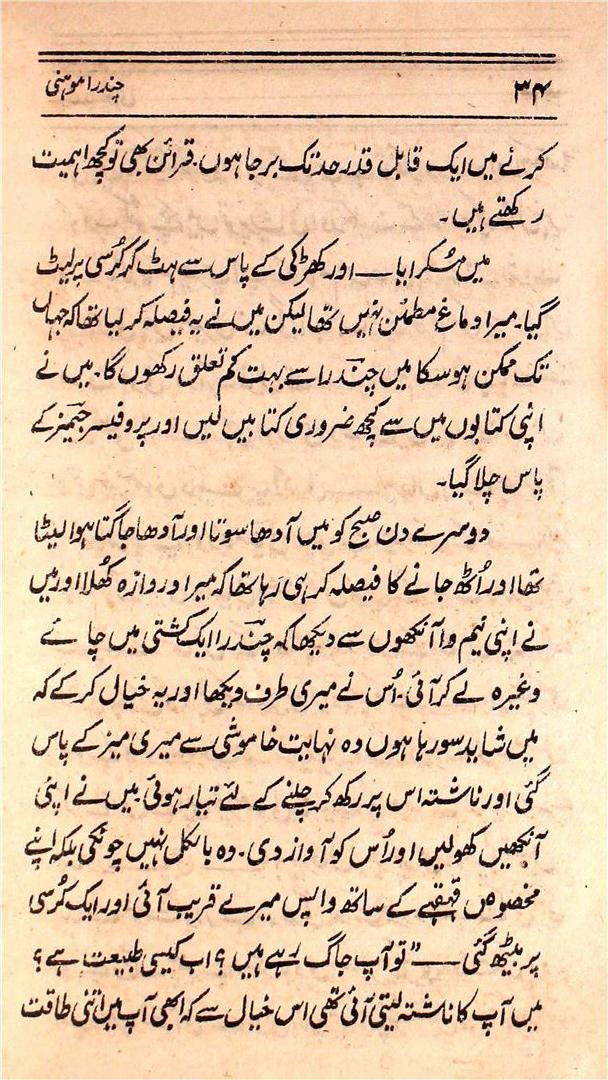 ۳۴ چندرا موہنی
کرنے میں ایک قابل قدر حد تک بر جا ہوں۔ قرائن بھی تو کچھ اہمیت
رکھتے ہیں۔
میں مُسکرایا ــــ اور کھڑکی کے پاس سے ہٹ کر کُرسی پر لیٹ
گیا۔ میرا دماغ مطمئن نہیں تھا لیکن میں نے یہ فیصلہ کر لیا تھا کہ جہاں
تک ممکن ہو سکا میں چندرا سے بہت کم تعلق رکھوں گا۔ میں نے
اپنی کتابوں میں سے کچھ ضروری کتابیں لیں اور پروفیسر جیمز کے
پاس چلا گیا۔
دوسرے دن صبح کو میں آدھا سوتا اور آدھا جاگتا ہوا لیٹا
تھا اور اُٹھ جانے کا فیصلہ کر ہی رہا تھا کہ میرا دروازہ کھُلا اور میں
نے اپنی نیم وا آنکھوں سے دیکھا کہ چندرا ایک کشتی میں چائے
وغیرہ لے کر آئی۔ اُس نے میری طرف دیکھا اور یہ خیال کر کے کہ
میں شاید سو رہا ہوں وہ نہایت خاموشی سے میری میز کے پاس
گئی اور ناشتہ اس پر رکھ کر چلنے کے لئے تیار ہوئی۔ میں نے اپنی
آنکھیں کھولیں اور اُس کو آواز دی۔ وہ بالکل نہیں چونکی بلکہ اپنے
مخصوص قہقہے کے ساتھ واپس میرے قریب آئی اور ایک کُرسی
پر بیٹھ گئی ــــ "تو آپ جاگ رہے ہیں؟ اب کیسی طبیعت ہے؟
میں آپ کا ناشتہ لیتی آئی تھی اس خیال سے کہ ابھی آپ میں اتنی طاقت